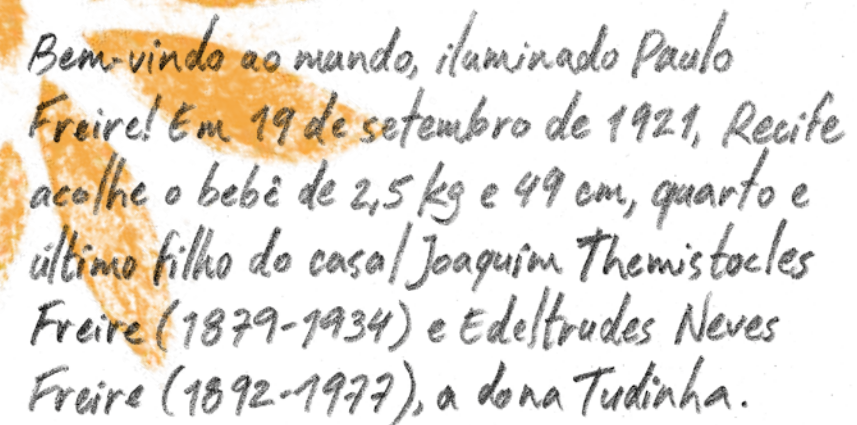 Bem-vindo ao mundo, iluminado Paulo
Freire! Em 19 de setembro de 1921, Recife
acolhe o bebê de 2,5 kg e 49 cm, quarto e
último filho do casal Joaquim Themistocles
Freire (1879-1934) e Edeltrudes Neves
Freire (1892-1977), a dona Tudinha.